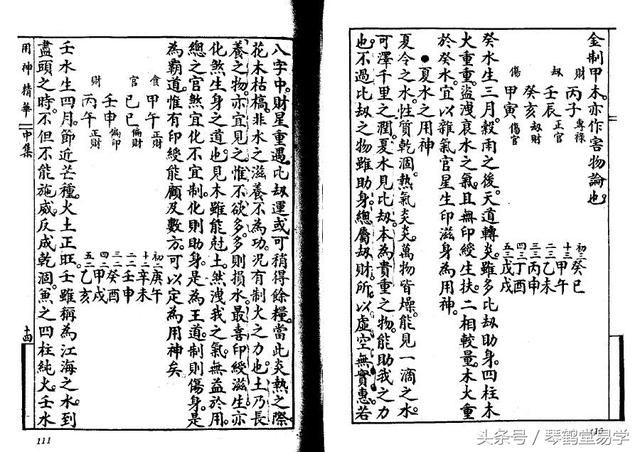 金制甲木。亦作害物論也
財 丙子 專祿 初三 癸巳
壬辰 正官 十三 甲午
劫 癸亥 劫財 二三 乙未
傷 甲寅 傷官 三三 丙申
四三 丁酉
五三 戊戌
癸水生三月。穀雨之後。天道轉炎。雖多比劫助身。四柱木
火重重。盜洩衰水之氣。且無印綬生扶。二相較量。木火重
於癸水。宜以雜氣官星生印滋身為用神。
●夏水之用神
夏令之水。性質乾涸。熱氣炎炎。萬物皆燥。能見一滴之水。
可澤千里之潤。夏水見比劫。本為貴重之物。能助我之力
也。不過比劫之物。雖助身。總屬劫財。所以虛空無實惠。若
110
八字中。財星重遇。比劫運或可稍得餘糧。當此炎熱之際
花木枯槁。非水之滋養不為功。況有制火之力也。土乃長
養之物。亦宜見之。惟不欲多。多則損水。最喜印綬滋生。亦
化煞生身之道也。見木雖能尅土。然洩我之氣。無益於用
總之官煞宜化不宜制。化則助身。是為王道。制則傷身。是
為霸道。惟有印綬能顧及數方。可以定為用神矣
食 甲午 正財 初二 庚午
官 己巳 偏財 十二 辛未
壬申 偏印 二二 壬申
財 丙午 正財 三二 癸酉
四二 甲戌
五二 乙亥
壬水生四月。節近芒種。火土正旺。壬雖稱為江海之水。到
盡頭之時。不但不能施威。反成乾涸。魚之四柱純火。壬水
用神精華 中集 十四
111
头条号/琴鹤堂易学